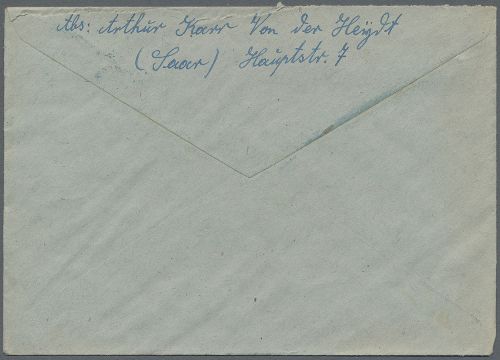 Abs: Arthur Karr Von der Heydt
(Saar) Hauptstr. 7